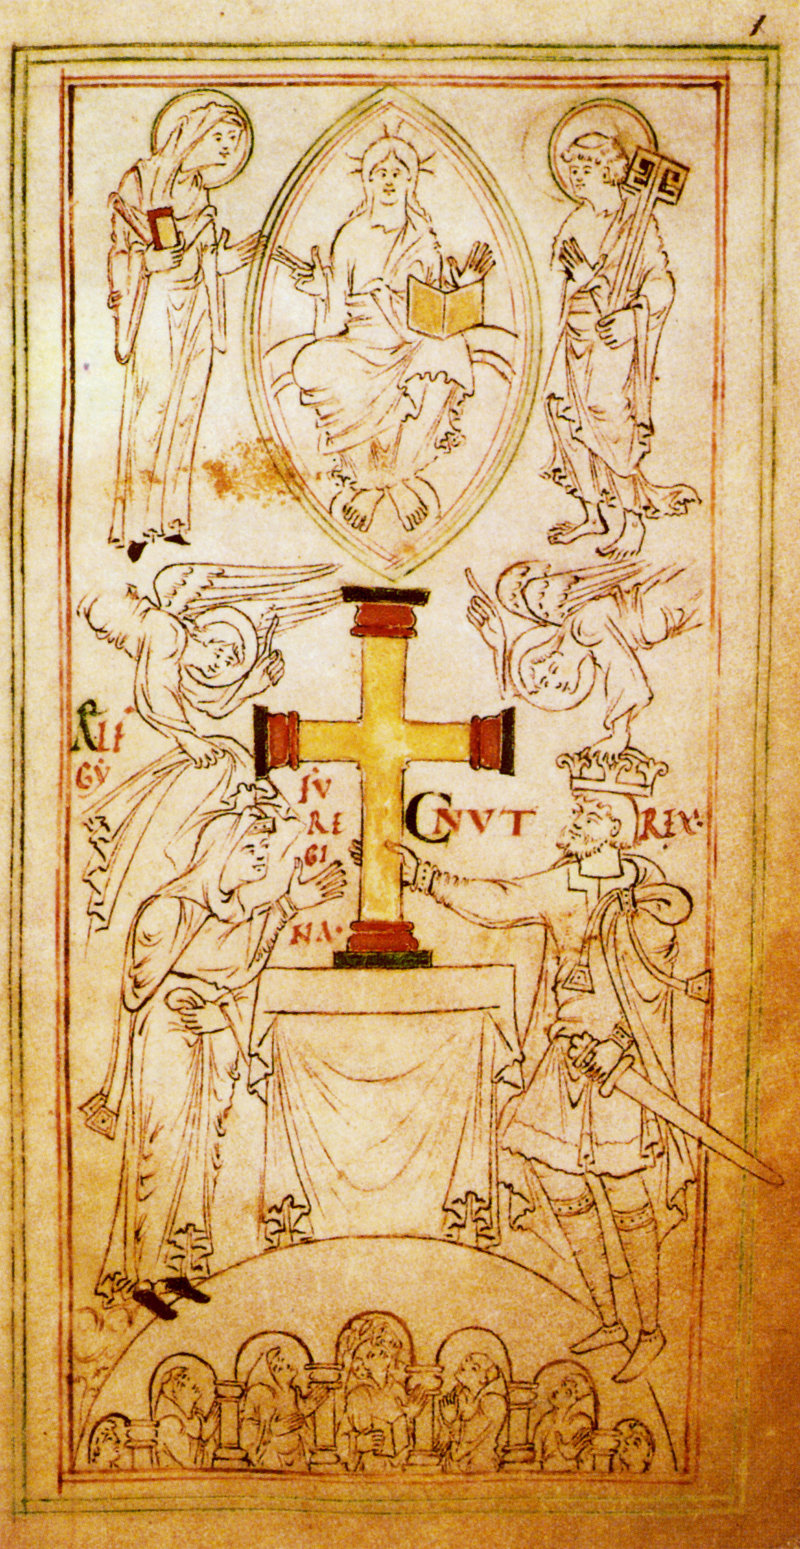 1
ÆLF
GẎ
FV
RE
GI
NA·
CNVT REX